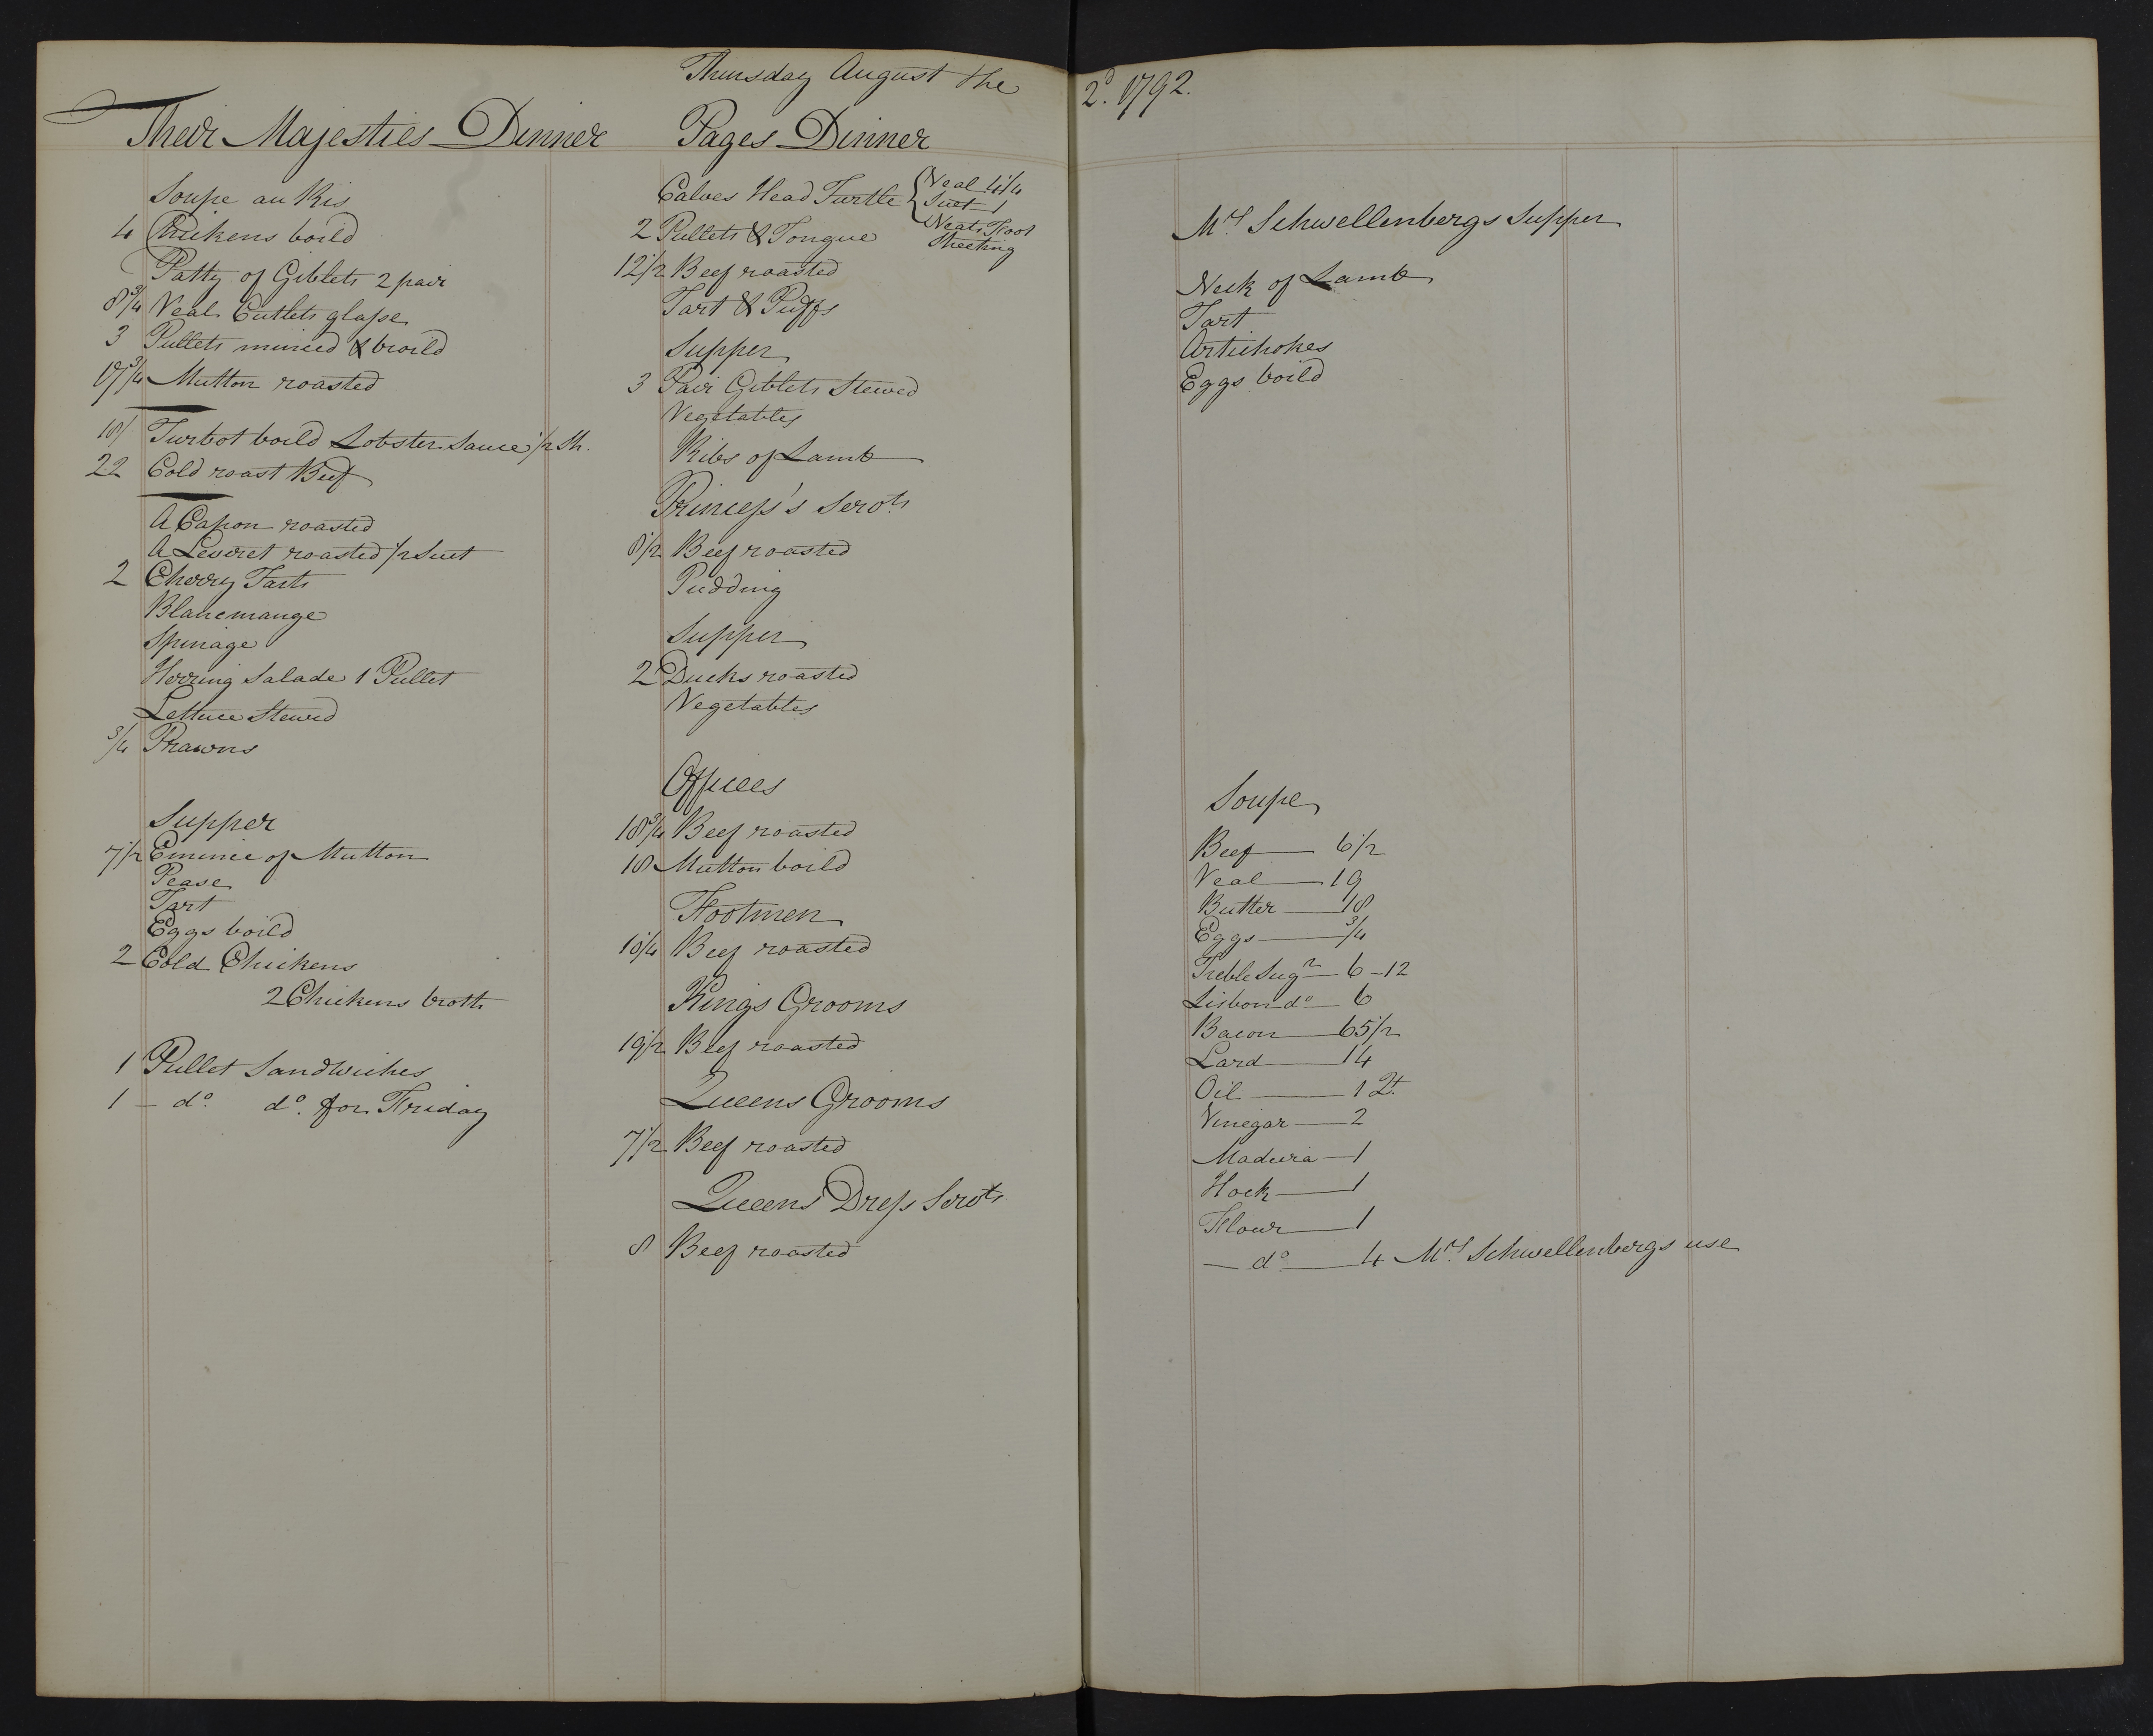 Thursday August the 2d. 1792.
Their Majesties Dinner
Soupe au Ris
4 Chickens boild
Patty of Giblets 2 pair
8 3/4 Veal Cutlets glasse
3 Pullets minced & broild
17 3/4 Mutton roasted
18/ Turbot boild Lobster Sauce 1/2 Sh.
22 Cold roast Beef
A Capon roasted
A Leveret roasted 1/2 Suet
2 Cherry Tarts
Blancmange
Spinage
Herring Salade 1 Pullet
Lettuce Stewd
3/4 Prawns
Supper
7 1/2 Emince of Mutton
Pease
Tart
Eggs boild
2 Cold Chickens
2 Chickens broth
1 Pullet Sandwiches
1 – do. do. for Friday
Pages Dinner
Calves Head Turtle { Veal 4 1/4
Suet 1
Neats Foot
Sheeting
2 Pullets & Tongue
12 1/2 Beef roasted
Tart & Puffs
Supper
3 Pair Giblets Stewed
Vegetables
Ribs of Lamb
Princess's Servts
8 1/2 Beef roasted
Pudding
Supper
2 Ducks roasted
Vegetables
Offices
18 3/4 Beef roasted
18 Mutton boild
Footmen
10 1/4 Beef roasted
Kings Grooms
19 1/2 Beef roasted
Queens Grooms
7 1/2 Beef roasted
Queens Dress Servts
8 Beef roasted
Mrs. Schwellenbergs Supper
Neck of Lamb
Tart
Artichokes
Eggs boild
Soupe
Beef — 6 1/2
Veal — 19
Butter — 18
Eggs — 3/4
Treble Sugr — 6 – 12
Lisbon do — 6
Bacon — 65 1/2
Lard — 14
Oil — 1 Qt.
Vinegar — 2
Madeira — 1
Hock — 1
Flour — 1
— do — 4 Mrs. Schwellenbergs use